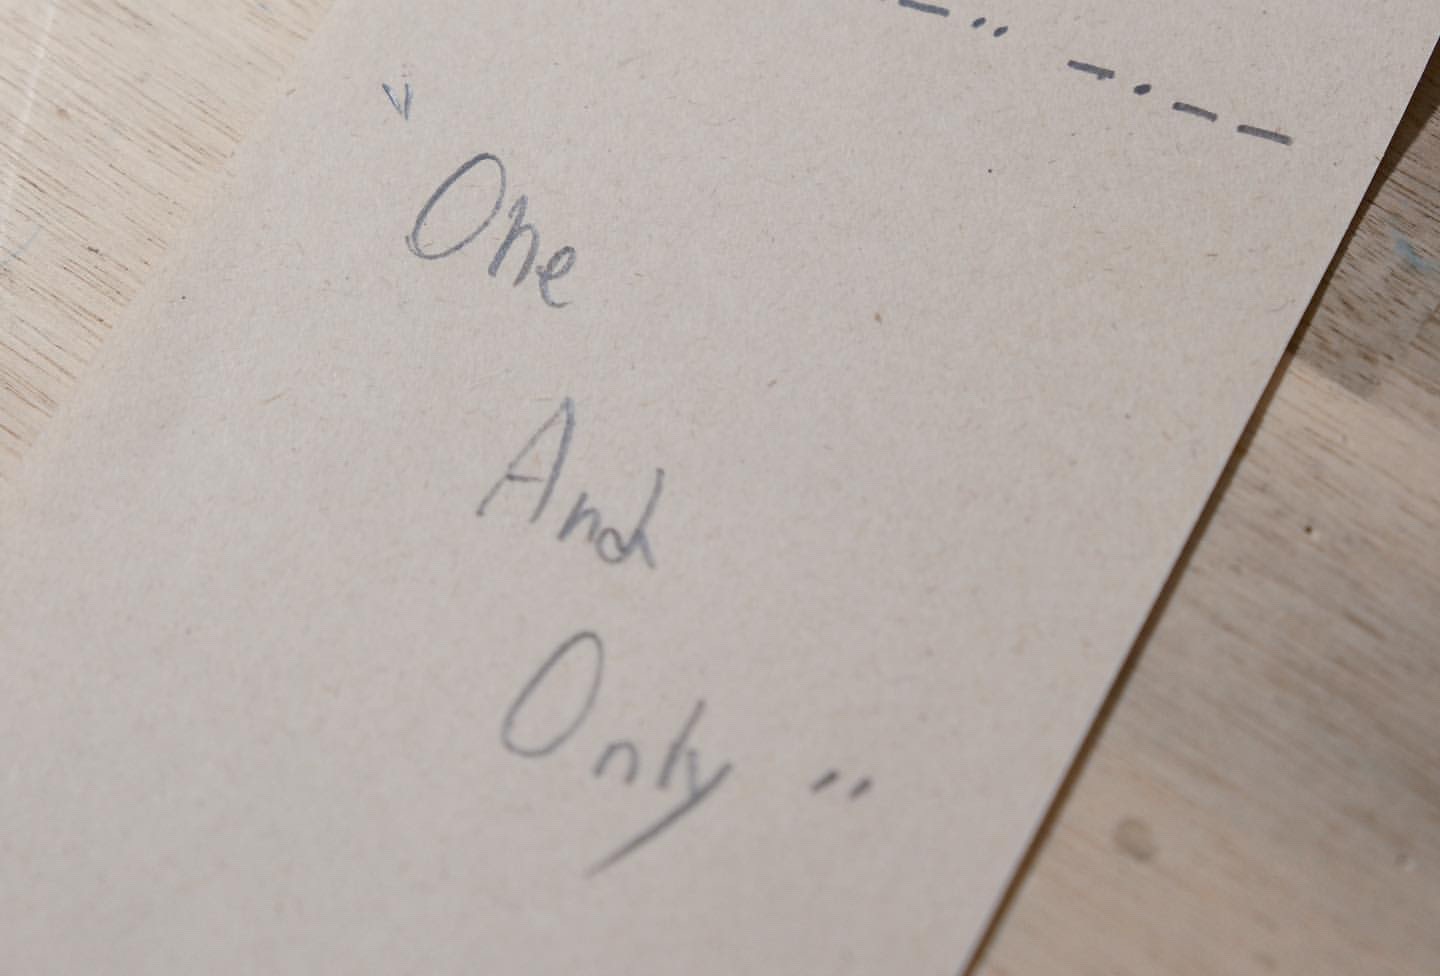 -.. -.--
"One
And
Only"